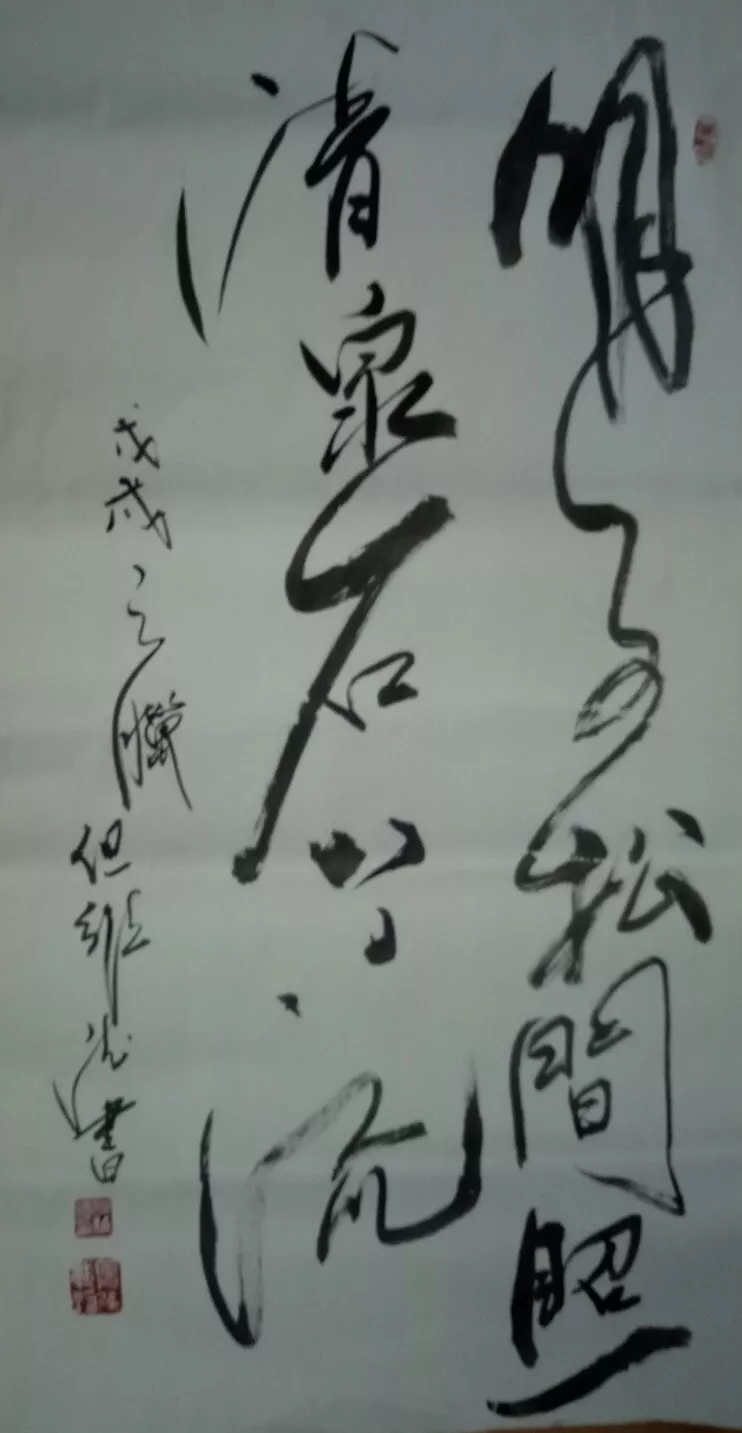 明月松間照
清泉石上流
戊戌之臘
但維書